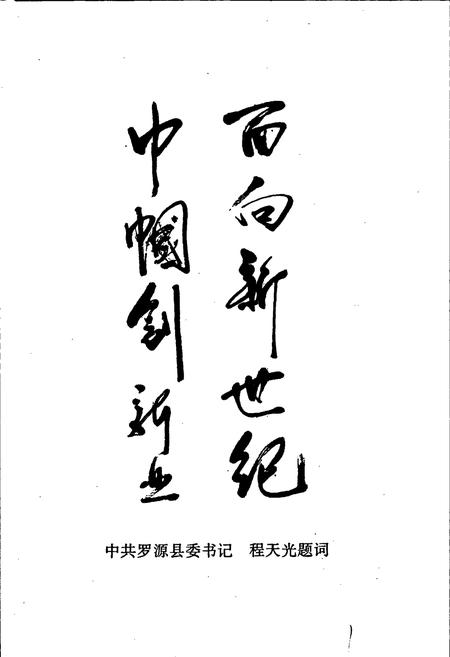 面向新世纪
巾帼创新业
中共罗源县委书记　程天光题词